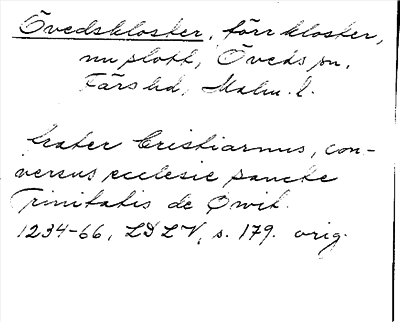 Övedskloster, förr kloster,
nu slott, Öveds sn,
Färs hd, Malm. l.
frater Cristiarnus, con-
versus ecclesie sancte
Trinitatis de Øwit.
1234-66, LDLV, s. 179. orig.